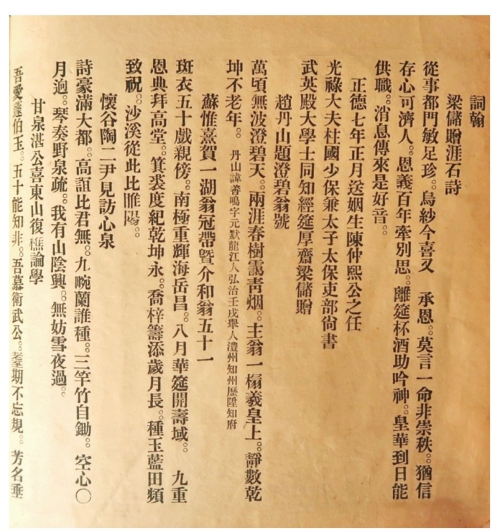 詞翰
梁儲贈涯石詩
從事都門敏足珍。。烏紗今喜又 承恩。。莫言一命非崇秩。。猶信
存心可濟人。。恩義百年牽別思。。離筵杯酒助吟神。。皇華到日能
供職。。消息傳來是好音。。
正德七年正月送姻生陳仲熙公之任
光祿大夫柱國少保兼太子太保吏部尙書
武英殿大學士同知經筵厚齋梁儲贈
趙丹山題澄碧翁號
萬頃無波澄碧天。。兩涯春樹靄靑烟。。主翁一榻羲皇上。。靜數乾
坤不老年。。 丹山諱善鳴字元默龍江人弘治壬戌舉人澧州知州歷陞知府
蘇惟熹賀一湖翁冠帶暨介和翁五十一
斑衣五十戲親傍。。南極重輝海岳昌。。八月華筵開壽域。。 九重
恩典拜高堂。。箕裘度紀乾坤永。。喬梓籌添歲月長。。種玉藍田頻
致祝。。沙溪從此比睢陽。。
懷谷陶二尹見訪心泉
詩豪滿大都。。高誼比君無。。九畹蘭誰種。。三竿竹自鋤。。空心〇
月逈。。琴奏野泉疏。。我有山陰興。。無妨雪夜過。。
甘泉湛公喜東山復樵論學
吾愛蘧伯玉。。五十能知非。。吾慕衛武公。。耄期不忘規。。芳名垂